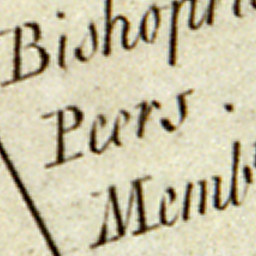 Bishopric
Peers .
Memb